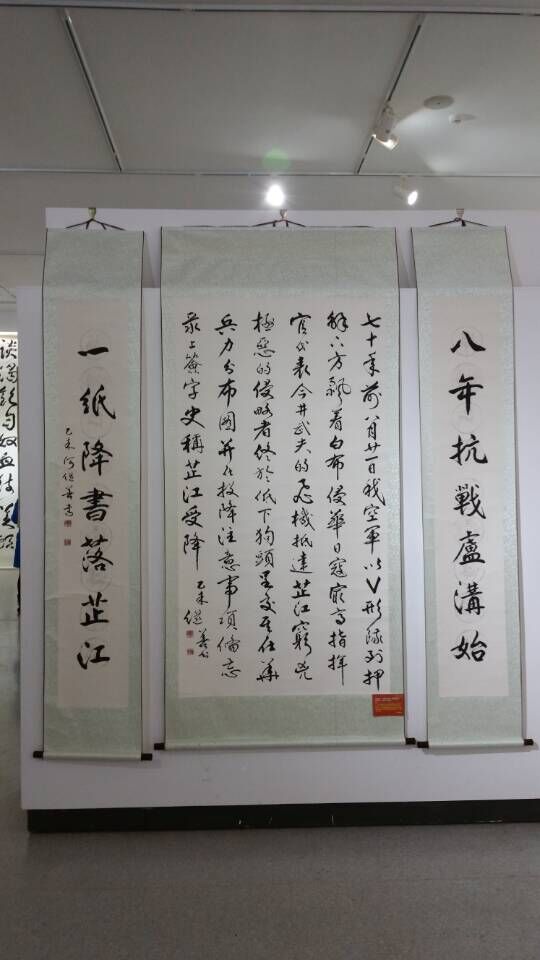 八年抗戰盧溝始
七十年前八月廿一日我空軍以V形隊列押
解方飄着白布侵華日寇最高指挥
官代表今井武夫的飛機抵達芷江窮兇
極惡的侵略者终於低下狗頭呈交在華
兵力分布圖并在投降注意事項備忘
录上簽字史稱芷江受降 乙未 继善书
一紙降書落芷江
乙未何继善書
談渴飲匈奴血待從頭